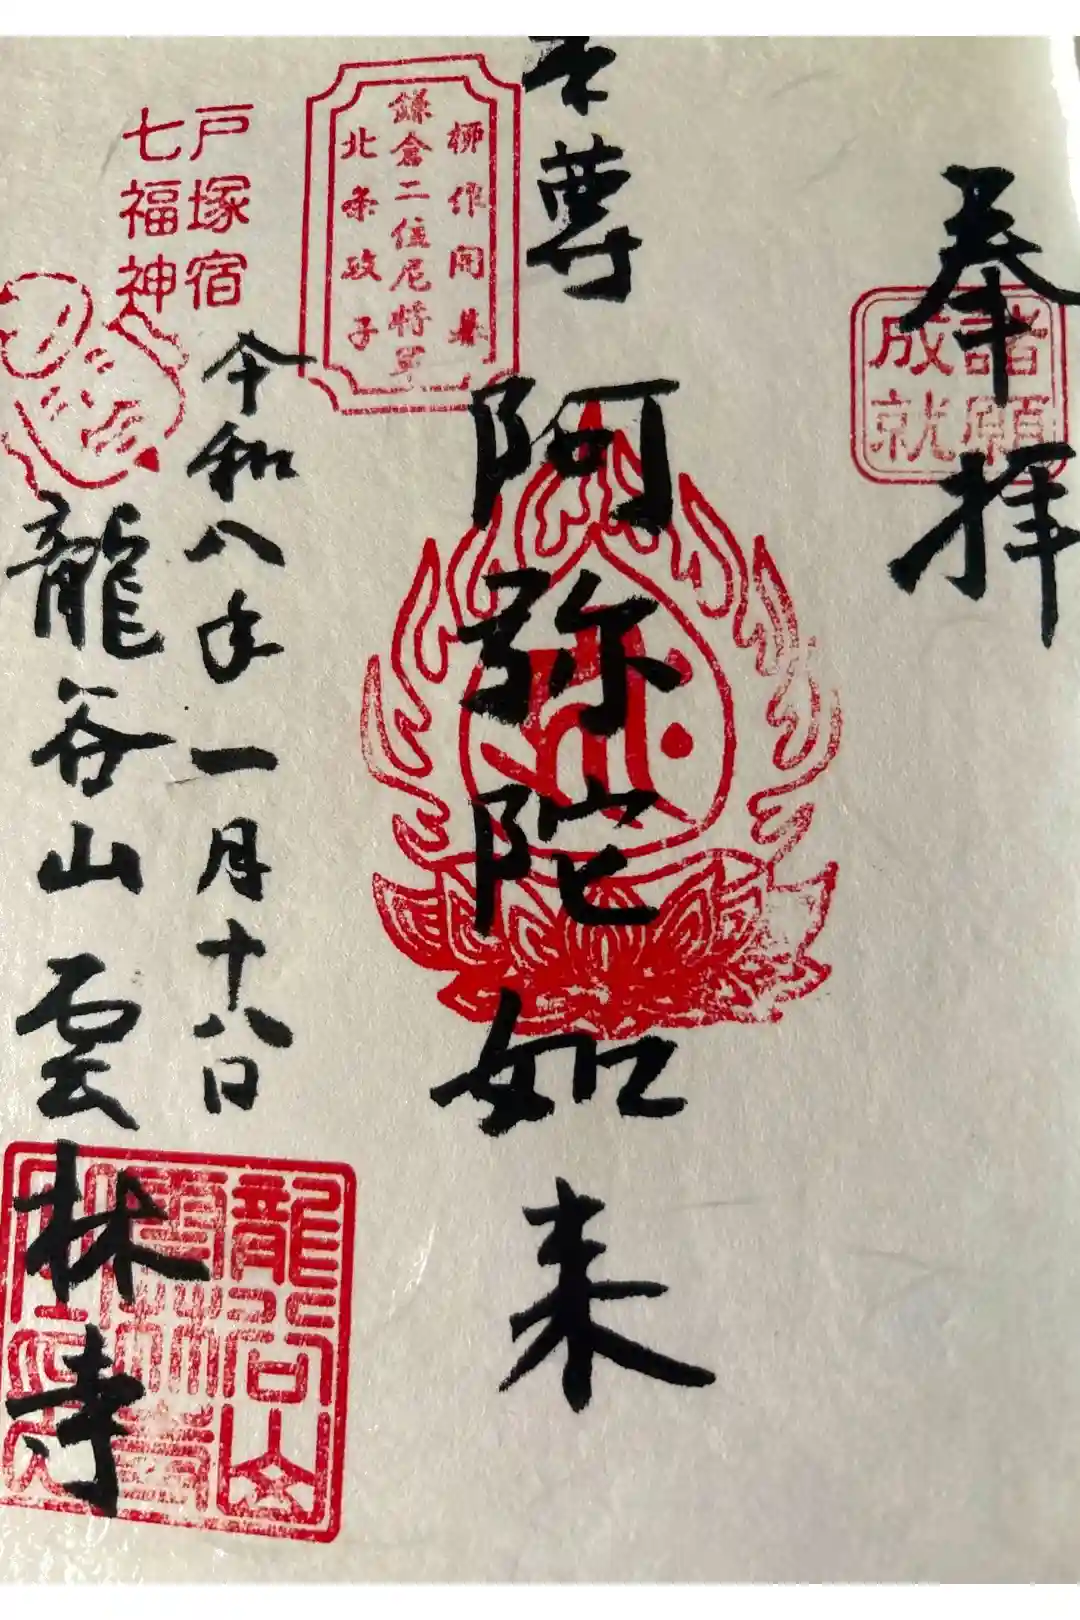 奉拝
諸願
成就
本尊 阿弥陀如来
柳作開基
鎌倉二位尼将軍
北条政子
戸塚宿
七福神
令和八年一月十八日
龍谷山雲林寺
龍谷山
雲林寺